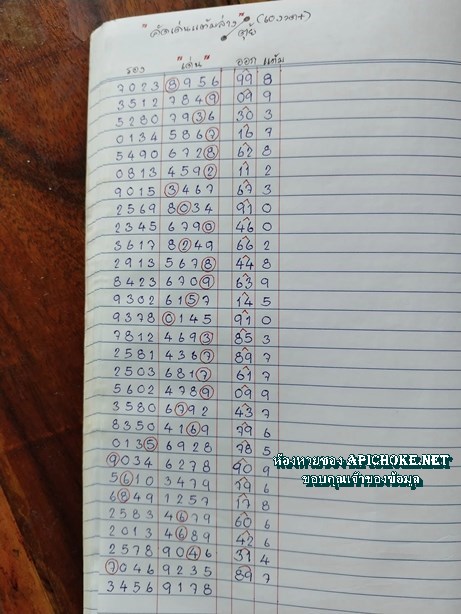 "คัดเด่นแต้มล่าง" (60 งวด+)
ตุ้ย
รอง "เด่น" ออก แต้ม
7023 8956 99 8
3512 7849 09 9
5280 7936 30 3
0134 5867 16 7
5490 6728 62 8
0813 4592 11 2
9015 3467 67 3
2569 8034 91 0
2345 6790 46 0
3617 8249 66 2
2913 5678 44 8
8423 6709 63 9
9302 6157 14 5
9378 0145 91 0
7812 4693 85 3
2581 4367 89 7
2503 6817 61 7
5602 4789 09 9
3580 6792 43 7
8350 4169 79 6
0135 6928 78 5
9034 6278 90 9
5610 3479 79 6
6849 1257 17 8
2583 4679 60 6
2013 4689 42 6
2578 9046 31 4
7046 9235 89 7
3456 9178
ห้องหวยของ APICHOKE.NET
ขอบคุณเจ้าของข้อมูล